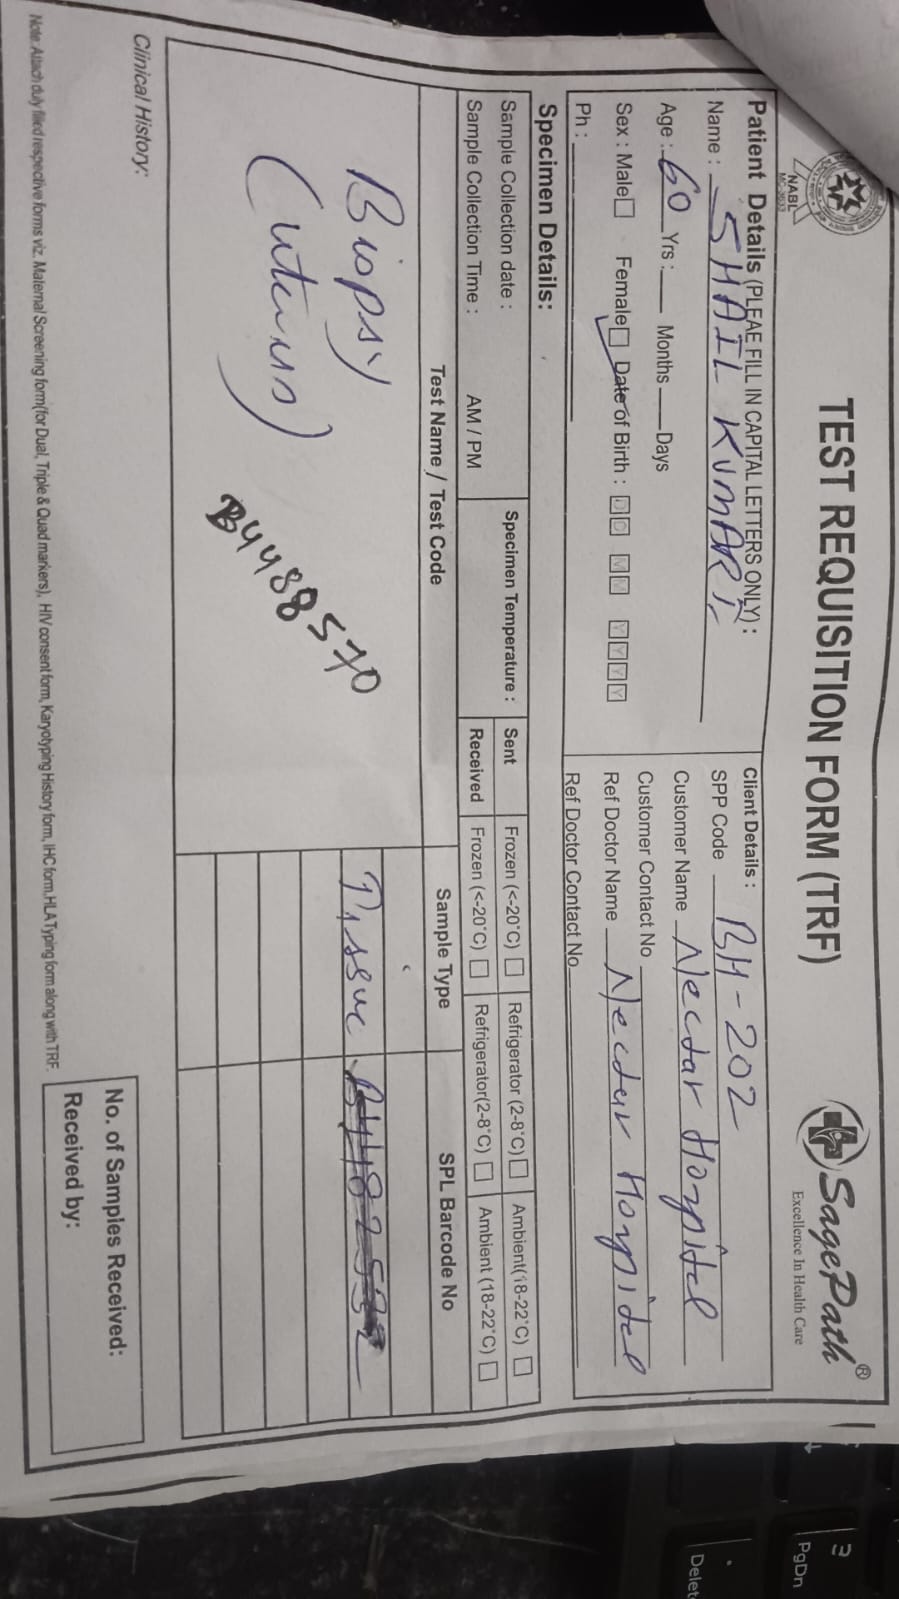 TEST REQUISITION FORM (TRF)
NABL
MC-3633
SagePath®
Excellence In Health Care
Patient Details (PLEAE FILL IN CAPITAL LETTERS ONLY) :
Name : SHAIL KUMARI
Age : 60 Yrs : Months Days
Sex : Male Female Date of Birth : M M Y Y Y Y
Ph :
Client Details :
SPP Code BH-202
Customer Name Nectar Hospital
Customer Contact No
Ref Doctor Name Nectar Hospital
Ref Doctor Contact No
Specimen Details:
Sample Collection date :
Sample Collection Time : AM / PM
Specimen Temperature :
Sent Frozen (<-20°C) Refrigerator (2-8°C) Ambient(18-22°C)
Received Frozen (<-20°C) Refrigerator(2-8°C) Ambient (18-22°C)
Test Name / Test Code Sample Type SPL Barcode No
Biopsy
(uterus)
Tissue
B4488570
Clinical History:
No. of Samples Received:
Received by:
Note: Attach duly filled respective forms viz. Maternal Screening form(for Dual, Triple & Quad markers), HIV consent form, Karyotyping History form, IHC form,HLA Typing form along with TRF.
PgDn
Delete